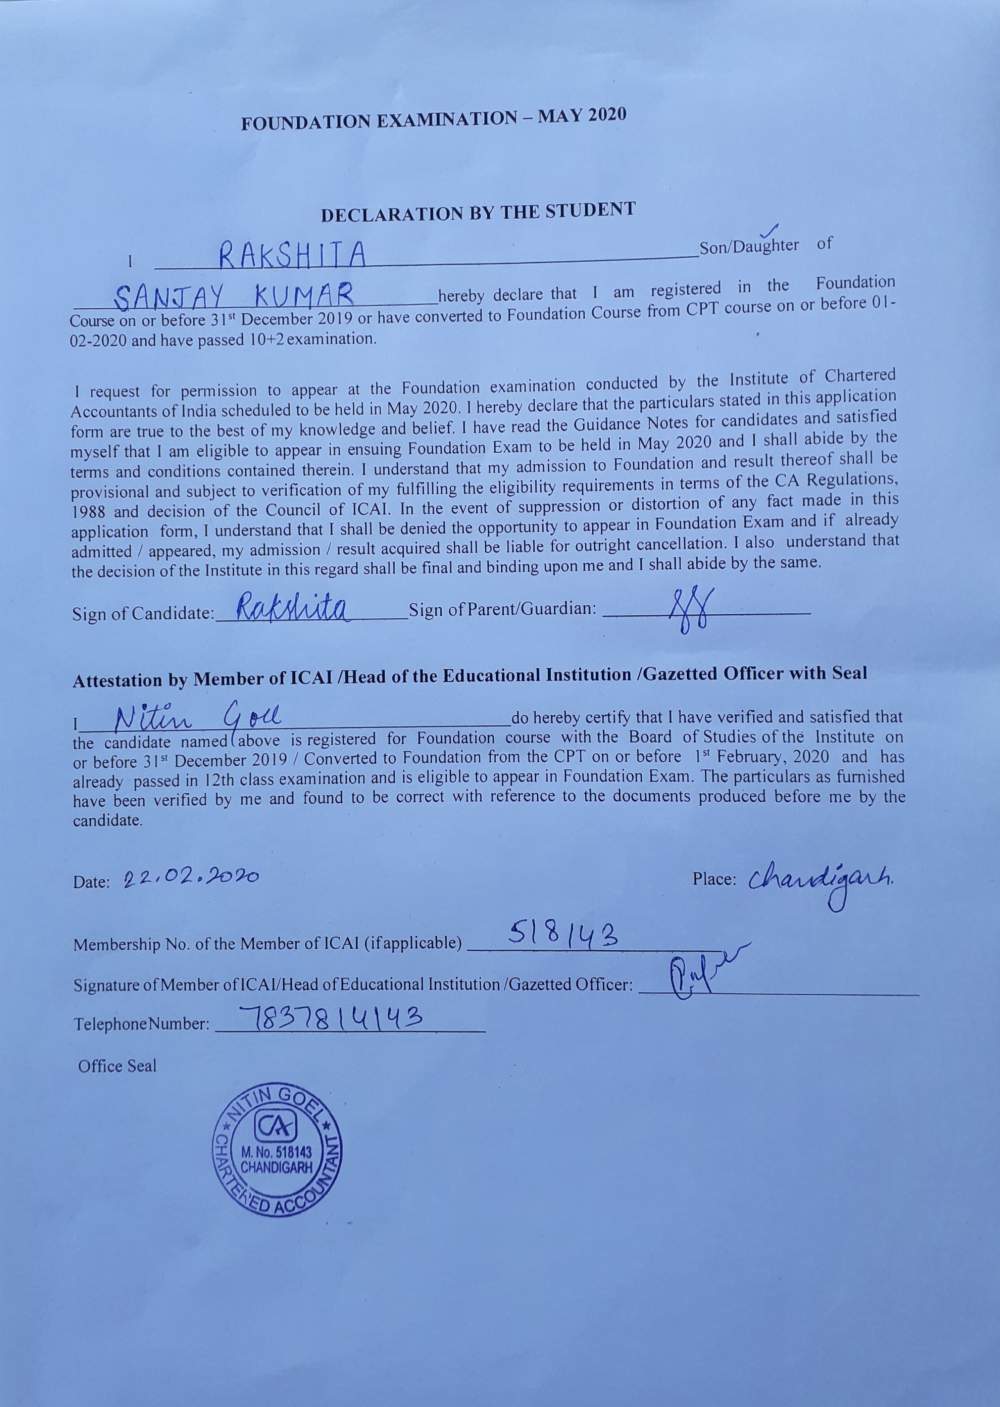 FOUNDATION EXAMINATION – MAY 2020
DECLARATION BY THE STUDENT
I RAKSHITA Son/Daughter of
SANJAY KUMAR hereby declare that I am registered in the Foundation
Course on or before 31st December 2019 or have converted to Foundation Course from CPT course on or before 01-
02-2020 and have passed 10+2 examination.
I request for permission to appear at the Foundation examination conducted by the Institute of Chartered
Accountants of India scheduled to be held in May 2020. I hereby declare that the particulars stated in this application
form are true to the best of my knowledge and belief. I have read the Guidance Notes for candidates and satisfied
myself that I am eligible to appear in ensuing Foundation Exam to be held in May 2020 and I shall abide by the
terms and conditions contained therein. I understand that my admission to Foundation and result thereof shall be
provisional and subject to verification of my fulfilling the eligibility requirements in terms of the CA Regulations,
1988 and decision of the Council of ICAI. In the event of suppression or distortion of any fact made in this
application form, I understand that I shall be denied the opportunity to appear in Foundation Exam and if already
admitted / appeared, my admission / result acquired shall be liable for outright cancellation. I also understand that
the decision of the Institute in this regard shall be final and binding upon me and I shall abide by the same.
Sign of Candidate: Rakshita Sign of Parent/Guardian:
Attestation by Member of ICAI /Head of the Educational Institution /Gazetted Officer with Seal
I Nitin Goel do hereby certify that I have verified and satisfied that
the candidate named above is registered for Foundation course with the Board of Studies of the Institute on
or before 31st December 2019 / Converted to Foundation from the CPT on or before 1st February, 2020 and has
already passed in 12th class examination and is eligible to appear in Foundation Exam. The particulars as furnished
have been verified by me and found to be correct with reference to the documents produced before me by the
candidate.
Date: 22.02.2020 Place: Chandigarh.
Membership No. of the Member of ICAI (if applicable) 518143
Signature of Member of ICAI/Head of Educational Institution /Gazetted Officer:
Telephone Number: 7837814143
Office Seal
NITIN GOEL
CA
M. No. 518143
CHANDIGARH
CHARTERED ACCOUNTANT